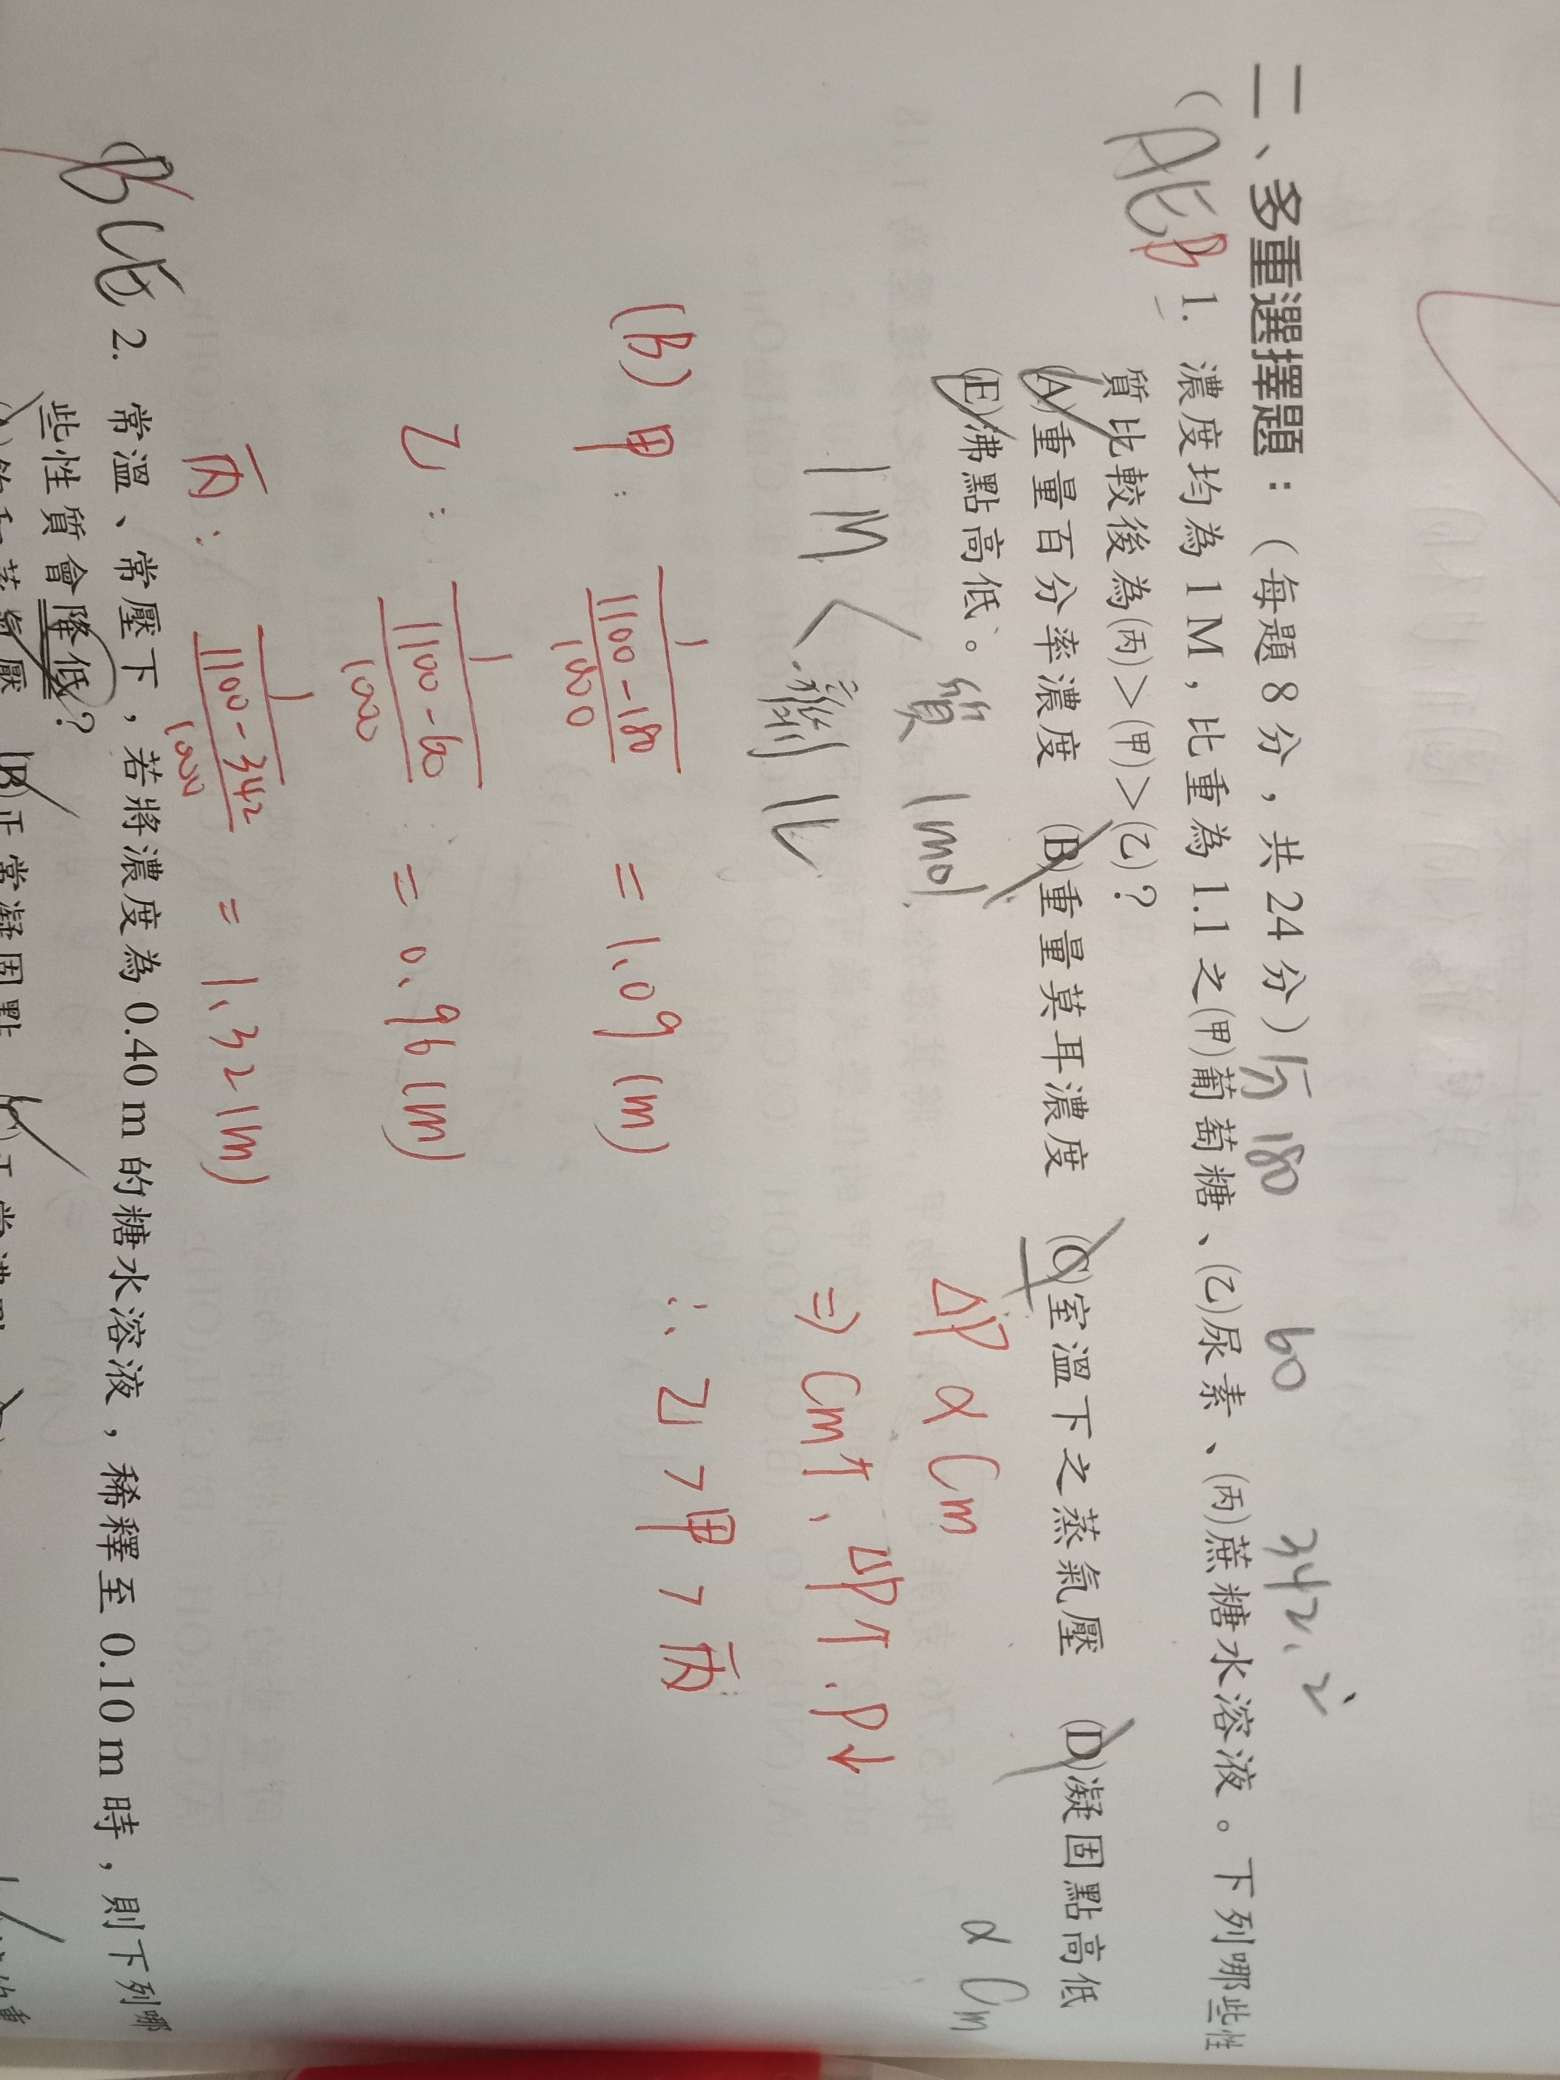 二、多重選擇題：(每題 8 分，共 24 分) 180 60 342.2
(AEB 1. 濃度均為 1 M，比重為 1.1 之(甲)葡萄糖、(乙)尿素、(丙)蔗糖水溶液。下列哪些性
質比較後為(丙)＞(甲)＞(乙)？
(A)重量百分率濃度 (B)重量莫耳濃度 (C)室溫下之蒸氣壓 (D)凝固點高低
(E)沸點高低。
質 1mol
1M < 液 1L
ΔP α Cm
α Cm
⇒ Cm↑, ΔP↑, P↓
∴ 乙 > 甲 > 丙
(B) 甲： 1 / (1100-180 / 1000) = 1.09 (m)
乙： 1 / (1100-60 / 1000) = 0.96 (m)
丙： 1 / (1100-342 / 1000) = 1.32 (m)
BCE 2. 常溫、常壓下，若將濃度為 0.40 m 的糖水溶液，稀釋至 0.10 m 時，則下列哪
些性質會降低？
(A)飽和蒸氣壓 (B)正常凝固點 (C)正常沸點